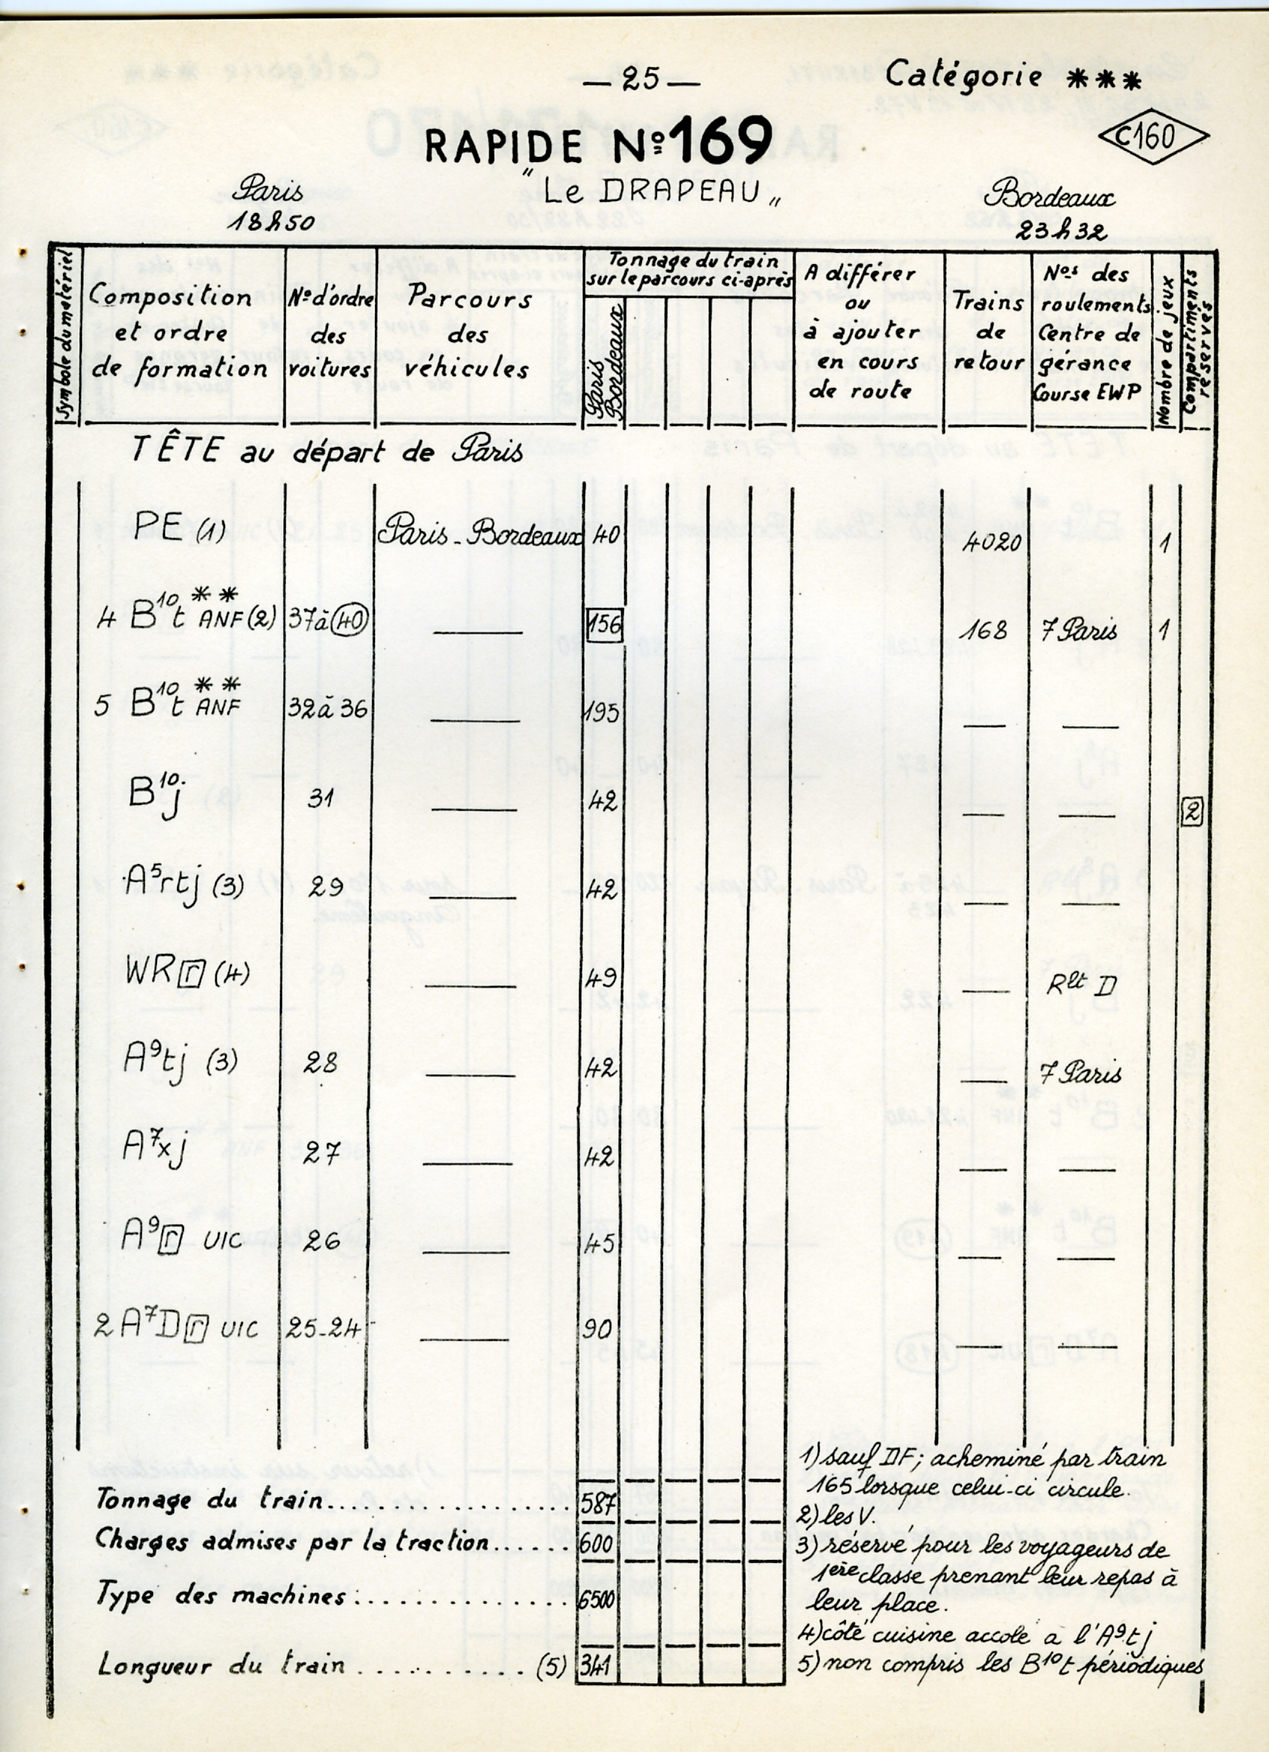 — 25 —
Catégorie ***
RAPIDE Nº 169
C160
"Le DRAPEAU"
Paris
18h50
Bordeaux
23h32
Symbole du matériel
Composition
et ordre
de formation
Nº d'ordre
des
voitures
Parcours
des
véhicules
Tonnage du train
sur le parcours ci-après
Paris
Bordeaux
A différer
ou
à ajouter
en cours
de route
Trains
de
retour
Nos des
roulements
Centre de
gérance
Course EWP
Nombre de jeux
Compartiments
réservés
TÊTE au départ de Paris
PE (1) Paris - Bordeaux 40 4020 1
4 B10t ** ANF (2) 37 à 40 —— 156 168 7 Paris 1
5 B10t ** ANF 32 à 36 —— 195 —— ——
B10j 31 —— 42 —— —— 2
A5rtj (3) 29 —— 42 —— ——
WR r (4) —— 49 —— Rlt D
A9tj (3) 28 —— 42 —— 7 Paris
A7xj 27 —— 42 —— ——
A9 r UIC 26 —— 45 —— ——
2 A7D r UIC 25-24 —— 90 —— ——
Tonnage du train.................. 587
Charges admises par la traction...... 600
Type des machines:............... 6500
Longueur du train ............. (5) 341
1) sauf DF; acheminé par train
165 lorsque celui-ci circule.
2) les V.
3) réservé pour les voyageurs de
1ère classe prenant leur repas à
leur place.
4) côté cuisine accolé à l'A9tj
5) non compris les B10t périodiques